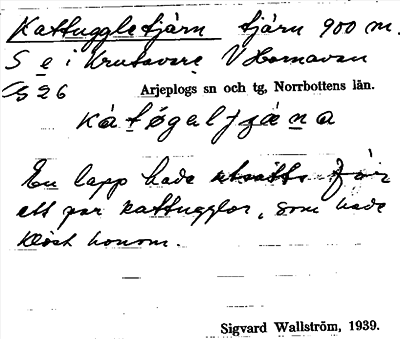 Kattuggletjärn tjärn 900 m.
S e i Krutavare, V Hornavan
B 26 Arjeplogs sn och tg, Norrbottens län.
En lapp hade utsatts för
ett par kattugglor, som hade
klöst honom.
Sigvard Wallström, 1939.